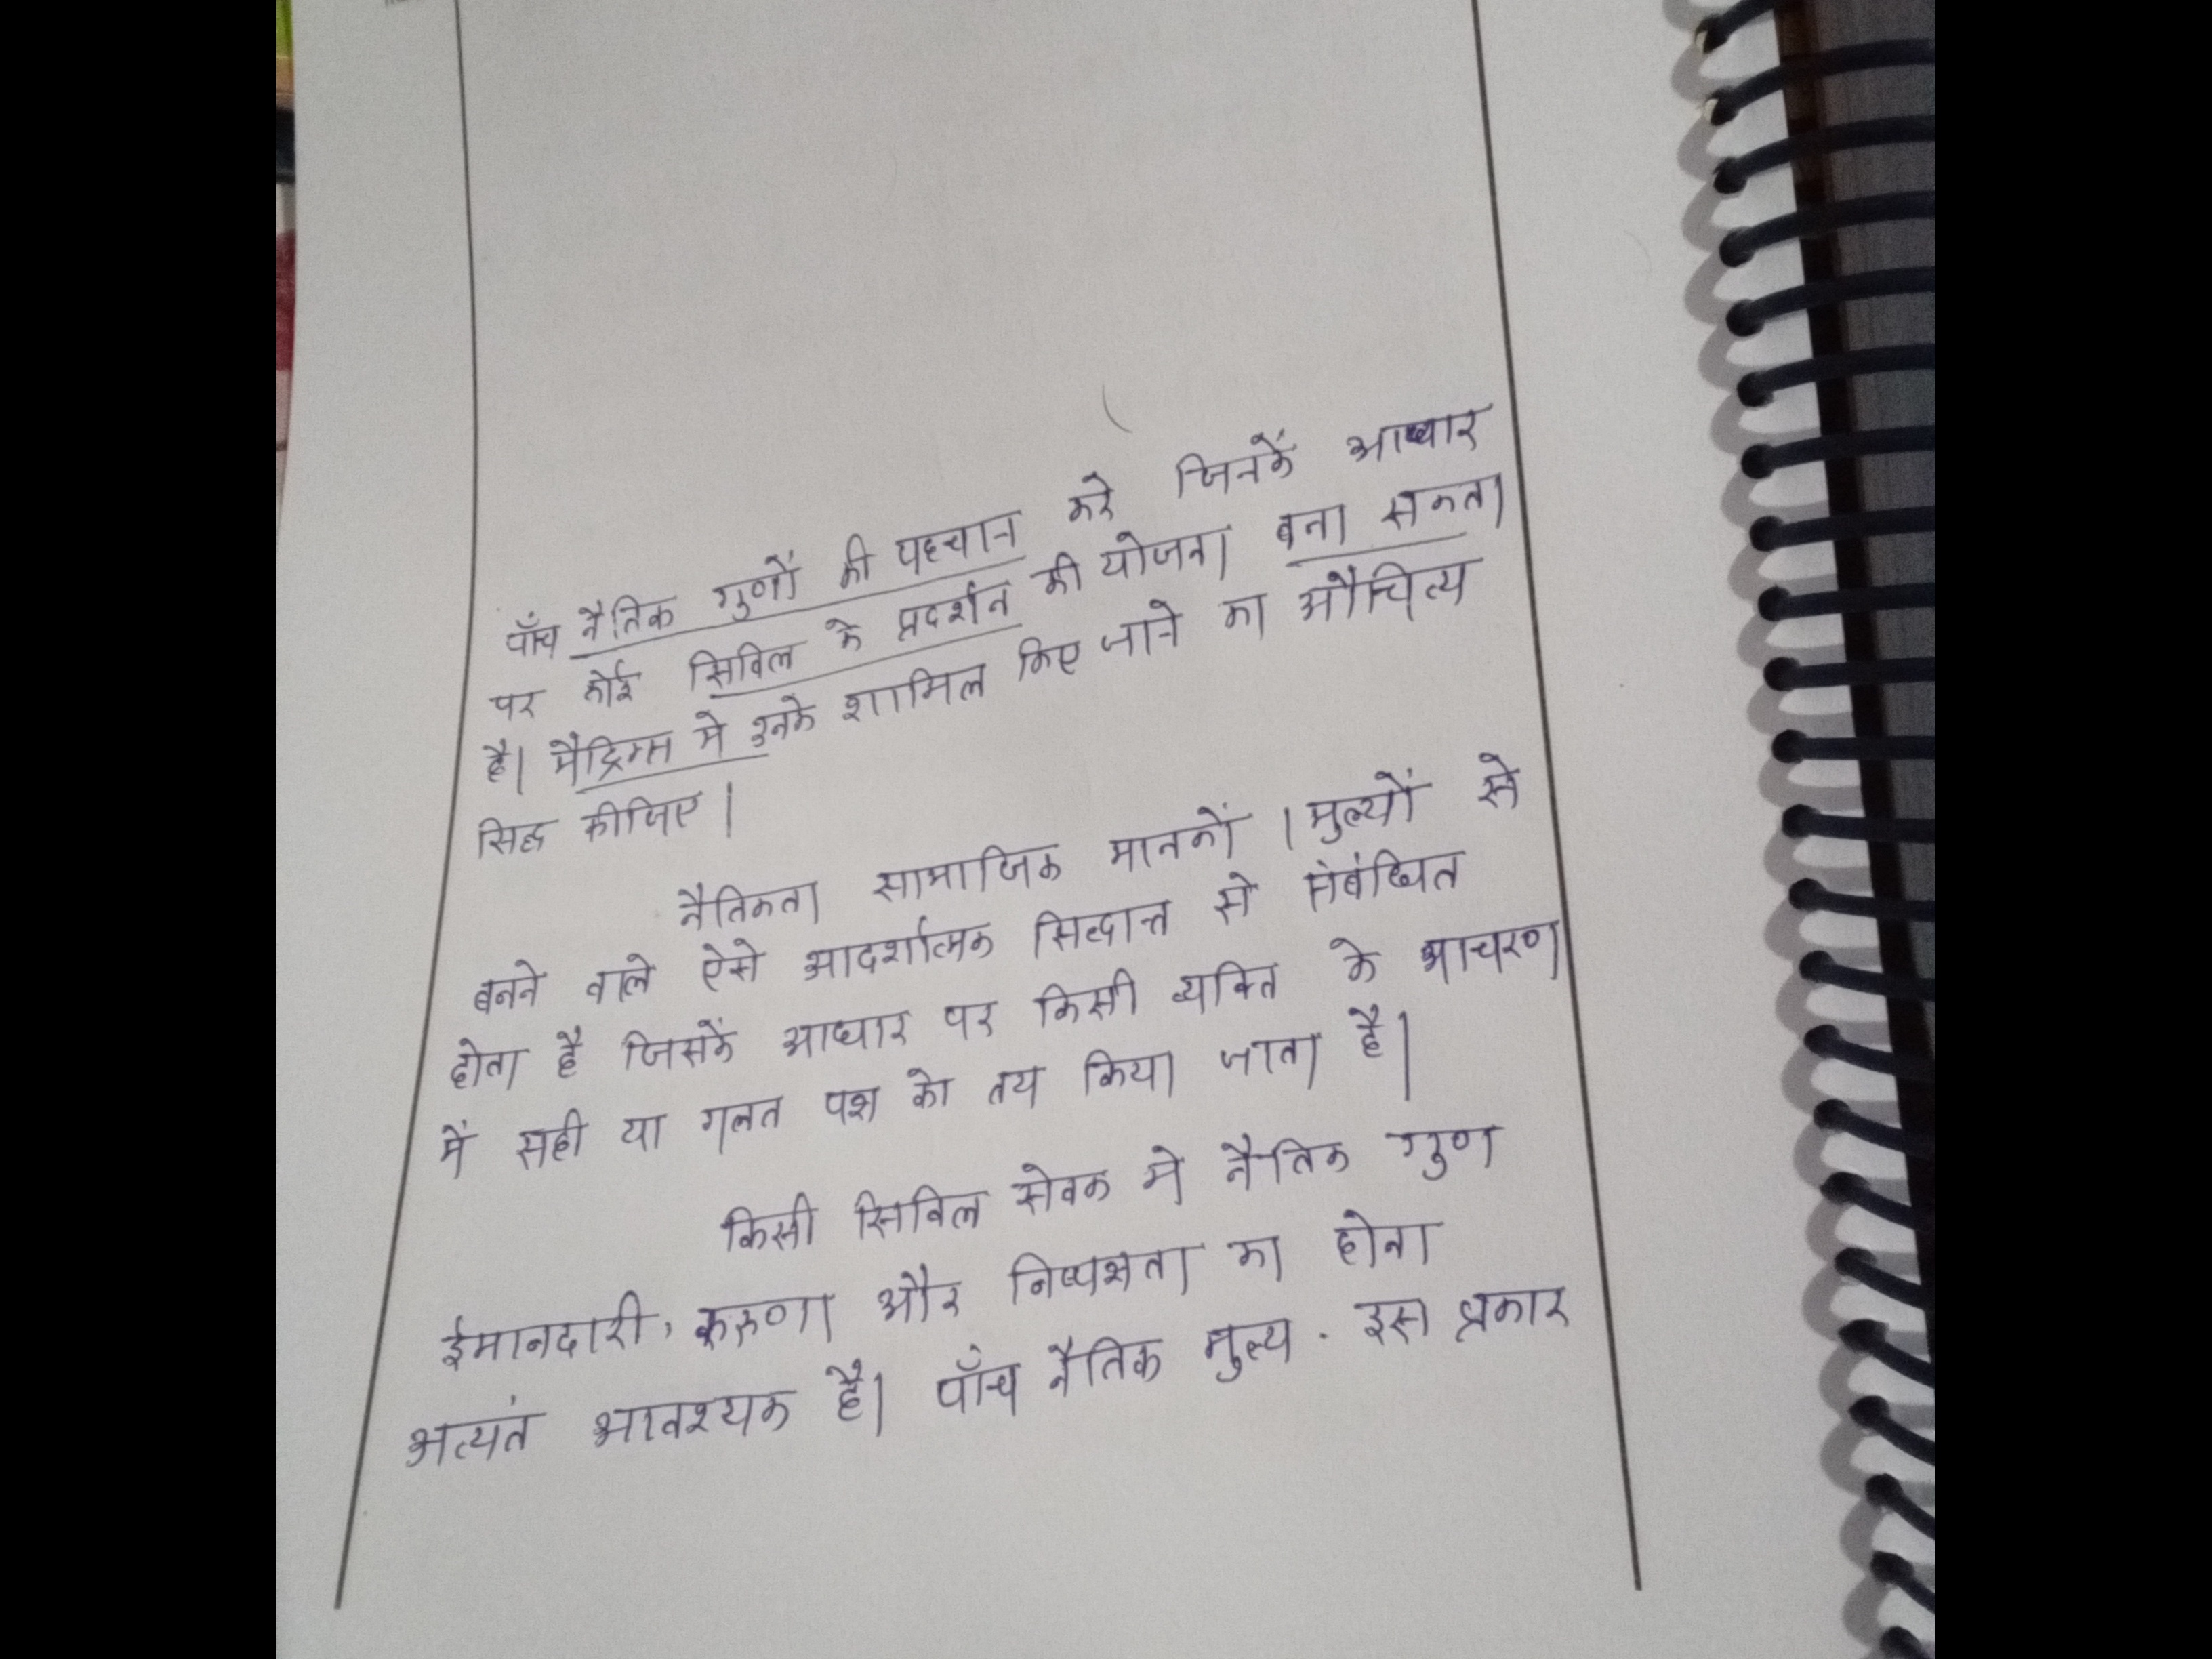 पाँच नैतिक गुणों की पहचान करे जिनकें आधार
पर कोई सिविल के प्रदर्शन की योजना बना सकता
है। मैट्रिक्स मे उनके शामिल किए जाने का औचित्य
सिद्ध कीजिए।
नैतिकता सामाजिक मानकों । मुल्यों से
बनने वाले ऐसे आदर्शात्मक सिद्धान्त से संबंधित
होता है जिसकें आधार पर किसी व्यक्ति के आचरण
में सही या गलत पक्ष को तय किया जाता है।
किसी सिविल सेवक मे नैतिक गुण
ईमानदारी, करुणा और निष्पक्षता का होना
अत्यतं आवश्यक है। पाँच नैतिक मुल्य . इस प्रकार